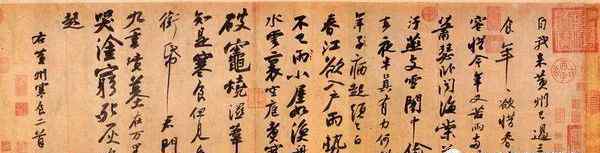 自我來黃州已過三
食年〻欲惜春
容惜今年又苦雨兩
蕭瑟臥聞海棠
汙燕支雪闇中偷
去夜半真有力何
年子病起頭已白
春江欲入戶雨勢
不已雨小屋如漁
水雲裏空庖煮寒
破竈燒濕葦
知是寒食但見烏
銜帋君門
九重墳墓在万里
哭塗窮死灰
起
右黃州寒食二首